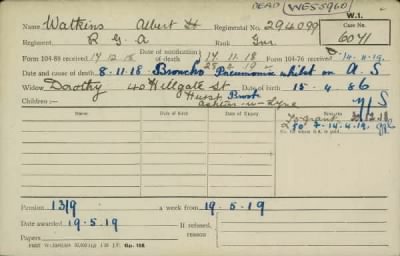 DEAD (WE55960)
W.1.
Name Watkins Albert H Regimental No. 294099 Case No.
Regiment R G A Rank Gnr 6071
Form 104-88 received 17 12 18 Date of notification of death 17 11 18 Form 104- 14-4-19
Date and cause of death 8.11.18 Broncho Pneumonia whilst on A.S
Widow Dorothy 40 Hillgate St Date of birth 15-4-86
Children:— Hurst Brook Ashton-u-Lyne N/S
Name Date of Birth Date of Expiry
Pension 13/9 a week from 19.5.19
Date awarded 19.5.19 If refused, reason
Papers